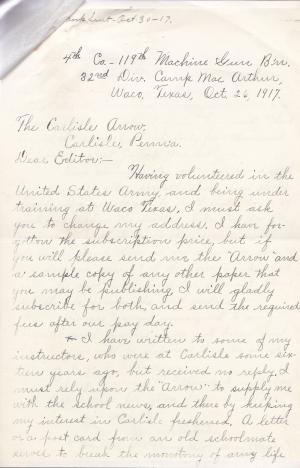 Sent Oct 30-17.
4th Co.-119th Machine Gun B'n.
32nd Div. Camp Mac Arthur,
Waco, Texas, Oct. 26, 1917.
The Carlisle Arrow,
Carlisle, Penn'a.
Dear Editor:-
Having volunteered in the
United States Army, and being under
training at Waco Texas, I must ask
you to change my address. I have for-
gotten the subscription price, but if
you will please send me the "Arrow" and
a sample copy of any other paper that
you may be publishing, I will gladly
subscribe for both, and send the required
fees after our pay day.
I have written to some of my
instructors, who were at Carlisle some six-
teen years ago, but received no reply, I
must rely upon the "Arrow" to supply me
with the school news, and there by keeping
my interest in Carlisle freshened. A letter
or a post card from an old schoolmate
serves to break the monotony of army life